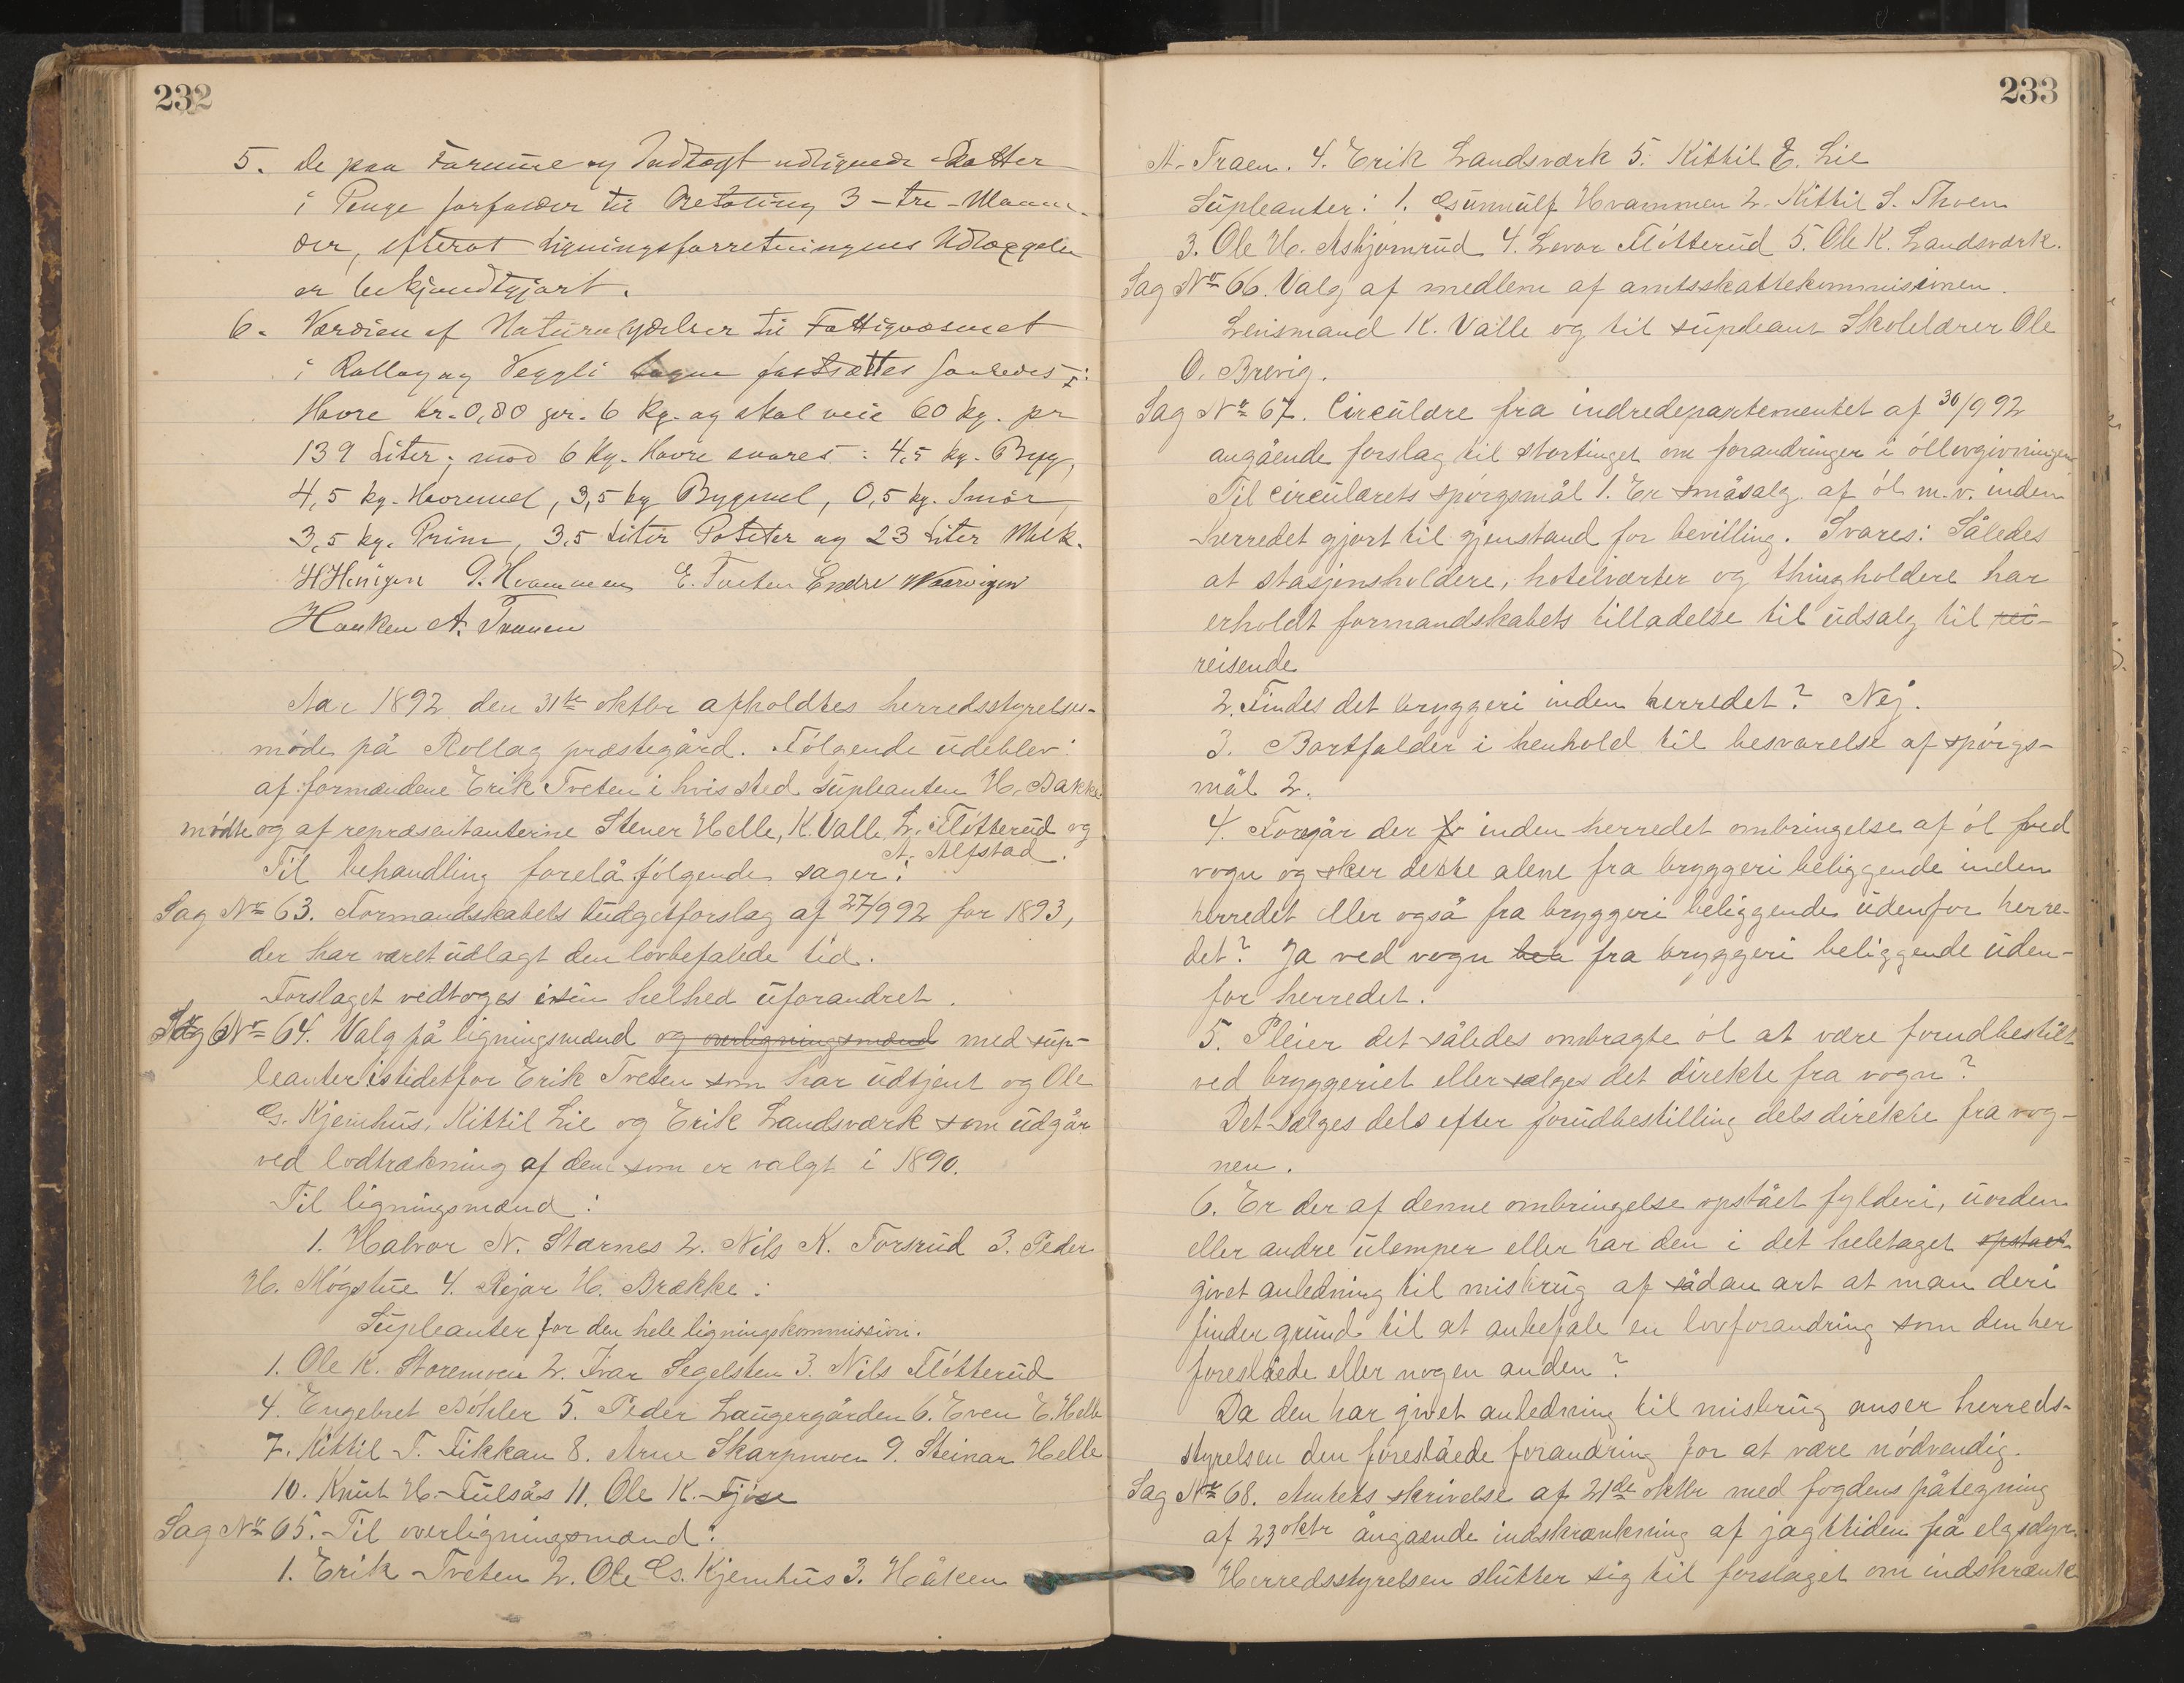 232
5. De paa Formue og Indtægt udlignede Skatter
i Penge forfalder til Betaling 3 - tre - Maane-
der, efterat Ligningsforretningens Udlæggelse
er bekjendtgjort.
6. Værdien af Naturalydelser til Fattigvæsenet
i Rollag og Veggli sogne fastsættes saaledes:
Havre Kr. 0,80 pr. 6 Kg. og skal veie 60 kg. pr
139 Liter; mod 6 Kg. Havre svares: 4,5 kg. Byg,
4,5 kg. Havremel, 3,5 kg Bygmel, 0,5 kg. Smør
3,5 kg. Prim, 3,5 Liter Poteter og 23 Liter Melk.
G. Hvammen E. Tveten Endre
Haaken A. Traaen
Aar 1892 den 31te oktbr afholdtes herredsstyrelses-
møde på Rollag præstegård. Følgende udeblev:
af formændene Erik Tveten i hvis sted supleanten H. Bakke
mødte og af repræsentanterne Stener Helle, K. Valle, L. Fløtterud og
A. Alfstad.
Til behandling forelå følgende sager:
Sag No 63. Formandskabets budgetforslag af 27/9 92 for 1893,
der har været udlagt den lovbefalede tid.
Forslaget vedtoges i sin helhed uforandret.
Sag No 64. Valg på ligningsmænd og overligningsmænd med sup-
leanter istedetfor Erik Tveten som har udtjent og Ole
G. Kjemhus, Kittil Lie og Erik Landsværk som udgår
ved lodtrækning af dem som er valgt i 1890.
Til ligningsmænd:
1. Halvor N. Stærnes 2. Nils K. Forsrud 3. Peder
H. Møgstue 4. Rejar H. Brække:
Supleanter for den hele ligningskommission.
1. Ole K. Storemoen 2. Ivar Segelsten 3. Nils Fløtterud
4. Engebret Bøhler 5. Peder Laugergården 6. Even E. Helle
7. Kittil T. Fikkan 8. Arne Skarpmoen 9. Steinar Helle
10. Knut H. Fulsås 11. Ole K. Fjøse
Sag No 65. Til overligningsmænd:
1. Erik Tveten 2. Ole Gs. Kjemhus 3. Håken
233
A. Traen. 4. Erik Landsværk 5. Kittil E. Lie
Supleanter: 1. Gunnulf Hvammen 2. Kittil S. Thoen
3. Ole H. Asbjørnrud 4. Levor Fløtterud 5. Ole K. Landsværk.
Sag No 66. Valg af medlem af amtsskattekommisionen.
Lensmand K. Valle og til supleant Skolelærer Ole
O. Brevig.
Sag No 67. Circulære fra indredepartementet af 30/9 92
angående forslag til stortinget om forandringer i øllovgivningen
Til circulærets spørgsmål 1. Er småsalg af øl m.v. inden
herredet gjort til gjenstand for bevilling. Svares: Således
at stasjonsholdere, hotelværter og thingholdere har
erholdt formandskabets tilladelse til udsalg til rei-
reisende
2. Findes det bryggeri inden herredet? Nej.
3. Bortfalder i henhold til besvarelse af spørgs-
mål 2.
4. Foregår der fr inden herredet ombringelse af øl ved
vogn og sker dette alene fra bryggeri beliggende inden
herredet eller også fra bryggeri beliggende udenfor herre-
det? Ja ved vogn fra bryggeri beliggende uden-
for herredet.
5. Pleier det således ombragte øl at være forudbestilt
ved bryggeriet eller sælges det direkte fra vogn?
Det sælges dels efter forudbestilling dels direkte fra vog-
nen.
6. Er der af denne ombringelse opstået fylderi, uorden
eller andre ulemper eller har den i det heletaget opstaet
givet anledning til misbrug af sådan art at man deri
finder grund til at anbefale en lovforandring som den her
foreslåede eller nogen anden?
Da den har givet anledning til misbrug anser herreds-
styrelsen den foreslåede forandring for at være nødvendig.
Sag No 68. Amtets skrivelse af 21de oktbr med fogdens påtegning
af 23 oktr ångaende indskrænkning af jagttiden på elgsdyr.
Herredsstyrelsen slutter sig til forslaget om indskrænk